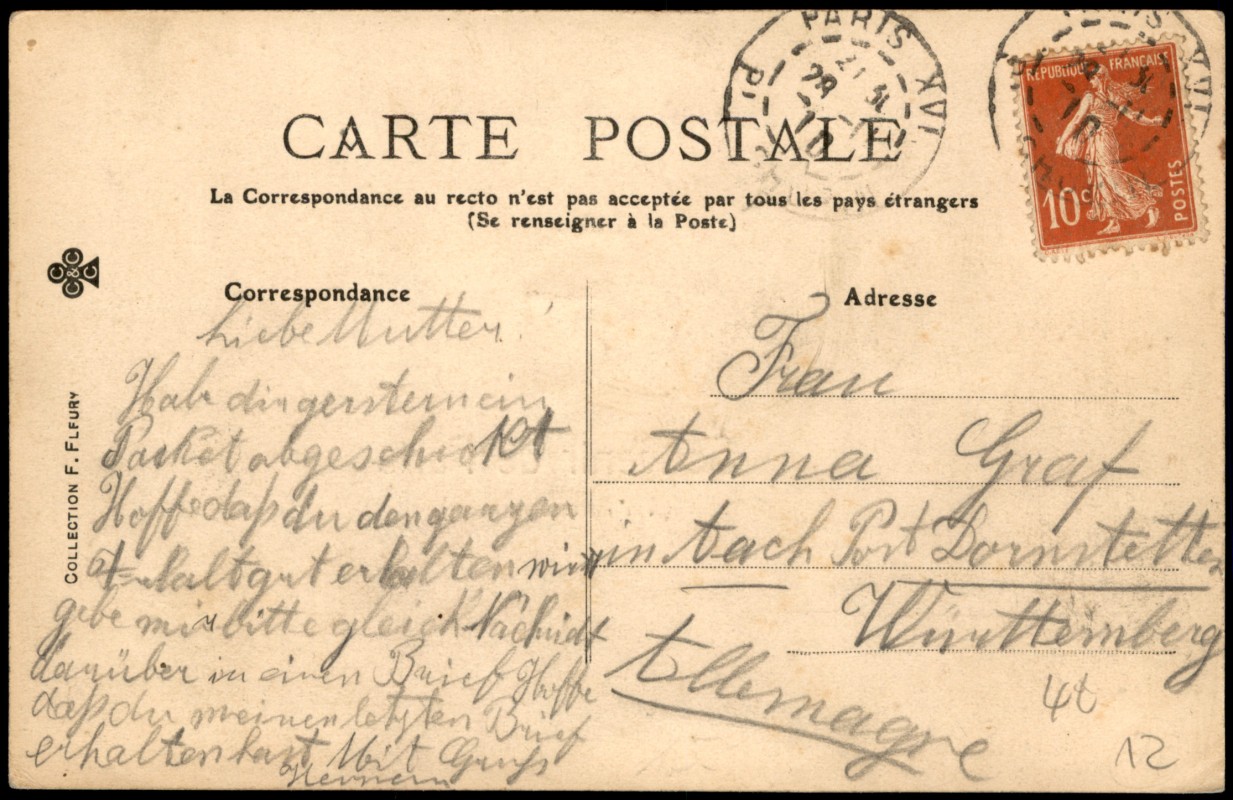 CARTE POSTALE
La Correspondance au recto n'est pas acceptée par tous les pays étrangers
(Se renseigner à la Poste)
PARIS XVI
PARIS XVI
RÉPUBLIQUE FRANÇAISE
10c
POSTES
C C & C C
COLLECTION F. FLEURY
Correspondance
Liebe Mutter!
Habe dir gerstern ein
Packet abgeschickt
Hoffe daß du den ganzen
halt gut erhalten wirst
gebe mir bitte gleich Nachricht
darüber in einen Brief Hoffe
daß du meinen letzten Brief
erhalten hast Mit Gruß
Adresse
Frau
Anna Graf
in Aach Post Dornstetten
Württemberg
Allemagne
12